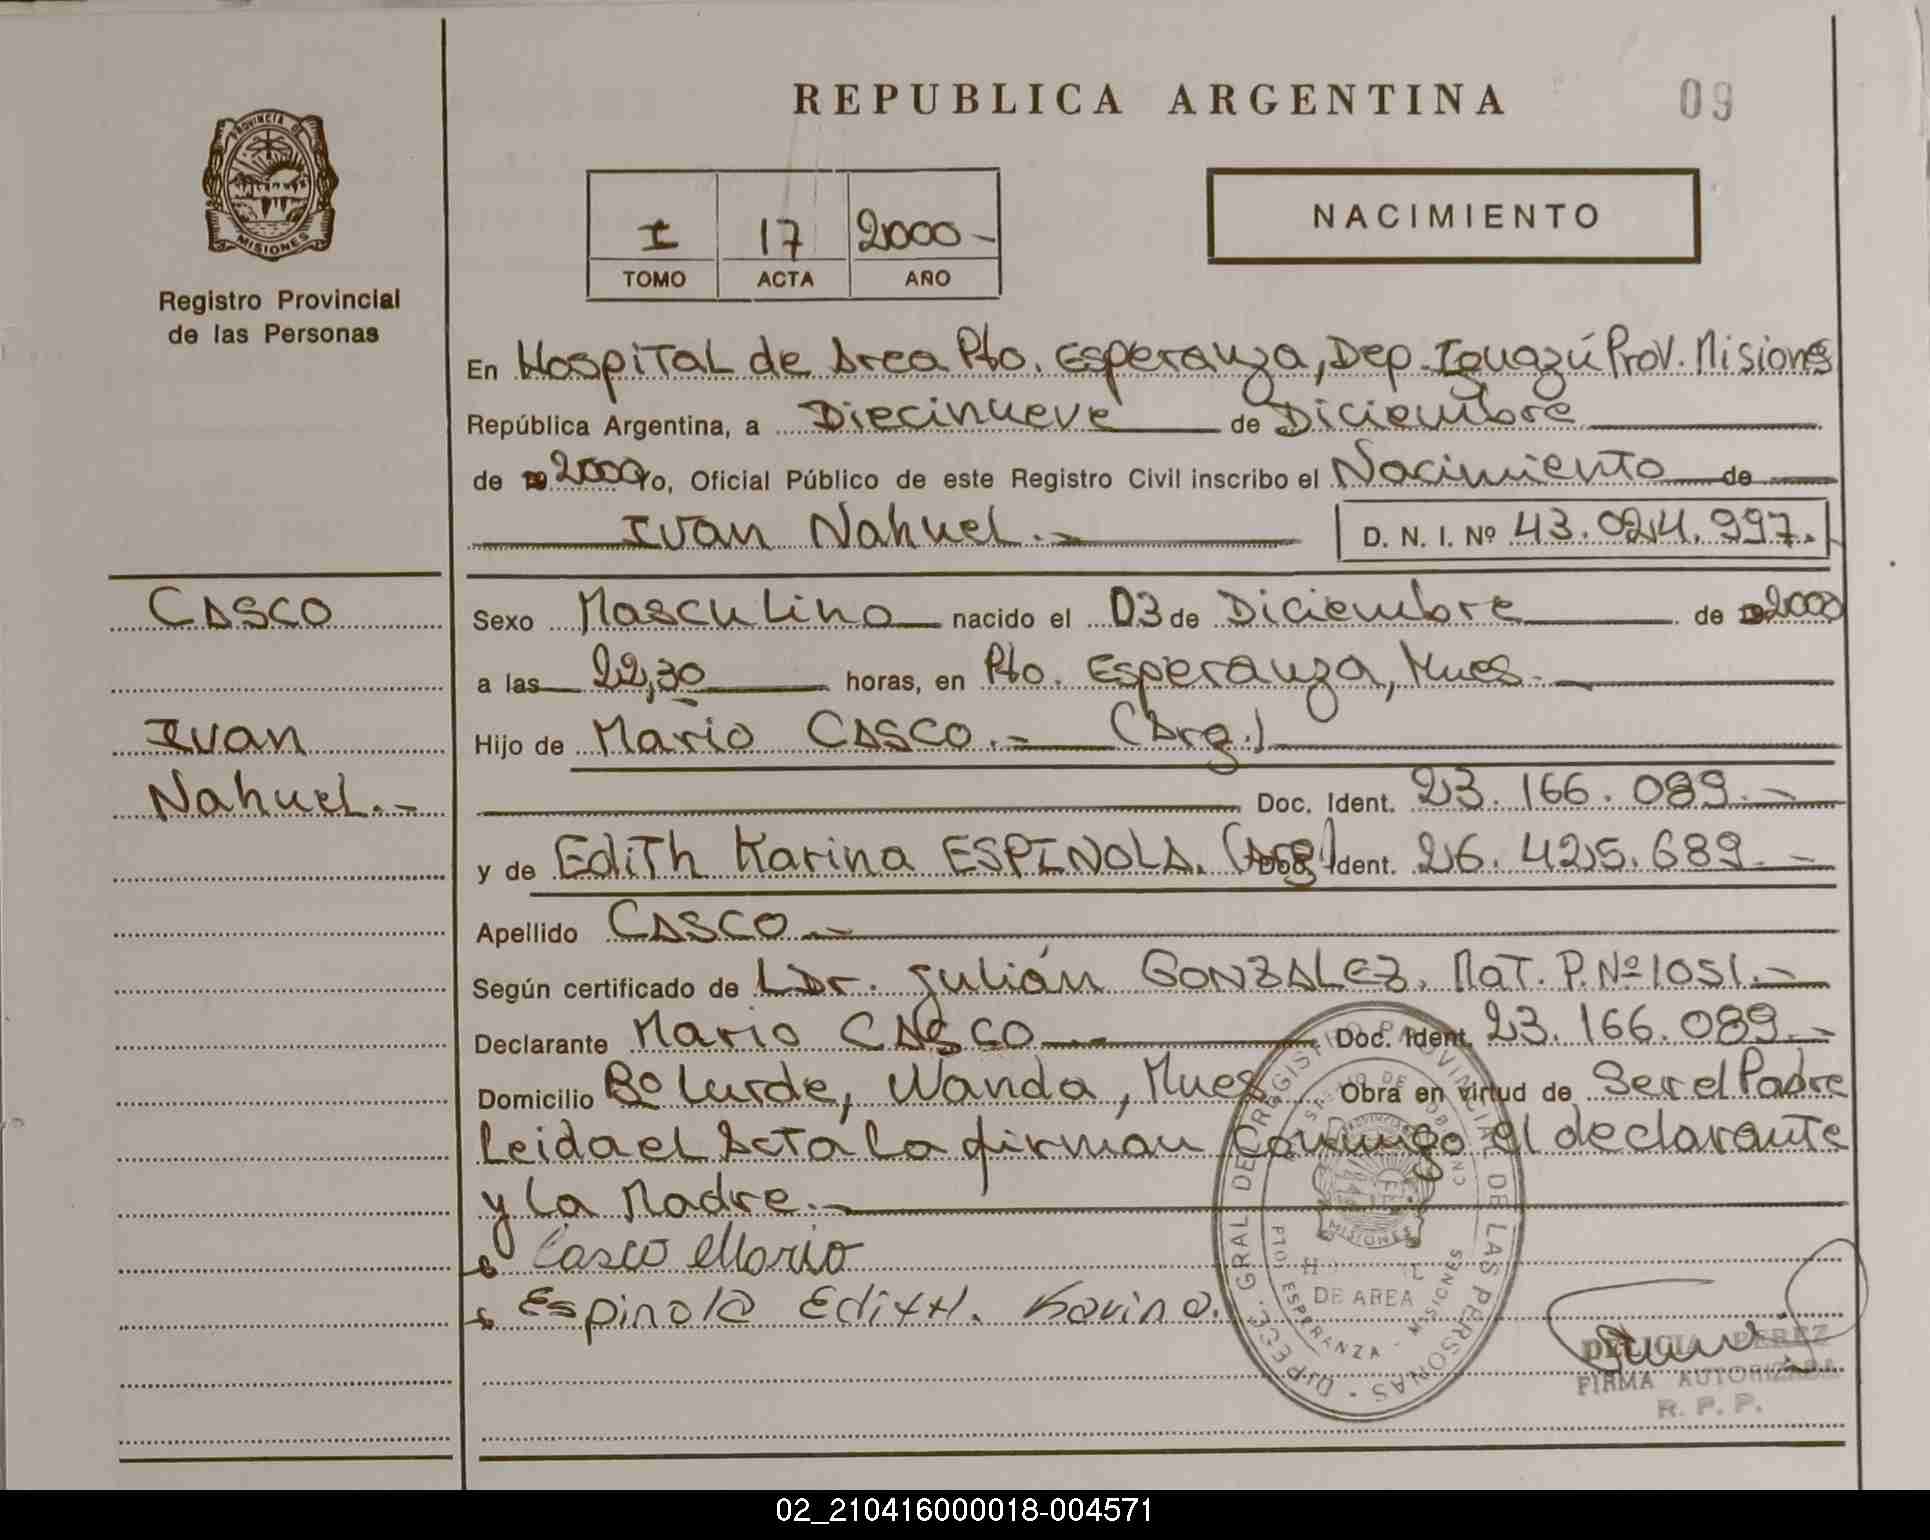 REPUBLICA ARGENTINA
09
PROVINCIA DE
MISIONES
Registro Provincial
de las Personas
I 17 2000-
TOMO ACTA AÑO
NACIMIENTO
En Hospital de Area Pto. Esperanza, Dep. Iguazú Prov. Misiones
República Argentina, a Diecinueve de Diciembre
de 2000 Yo, Oficial Público de este Registro Civil inscribo el Nacimiento de
Ivan Nahuel.-
D. N. I. Nº 43.024.997.
CASCO
Sexo Masculino nacido el 03 de Diciembre de 2000
a las 22,30 horas, en Pto. Esperanza, Mnes.
Ivan
Hijo de Mario CASCO.- (Arg.)
Nahuel.-
Doc. Ident. 23.166.089.-
y de Edith Karina ESPINOLA. (Arg) Doc. Ident. 26.425.689.-
Apellido CASCO.-
Según certificado de Dr. Julián GONZALEZ. Mat. P. Nº 1051.-
Declarante Mario CASCO Doc. Ident. 23.166.089.-
Domicilio Bº Lurde, Wanda, Mnes Obra en virtud de Ser el Padre
Leida el Acta La firman Conmigo el declarante
y La Madre.-
Casco Mario
Espinola Edith. Karina.
DIR. GRAL DE REGISTRO PROVINCIAL DE LAS PERSONAS
MISIONES
DE AREA
PTO. ESPERANZA - MISIONES
PEREZ
FIRMA AUTORIZADA
R. P. P.
02_210416000018-004571